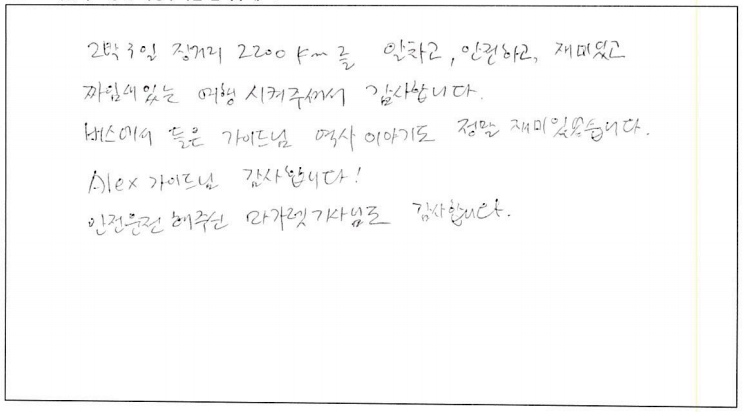 2박3일 장거리 2200km를 알차고, 안전하고, 재미있고
짜임새있는 여행 시켜주셔서 감사합니다.
버스에서 들은 가이드님 역사이야기도 정말 재미있었습니다.
Alex 가이드님 감사합니다!
안전운전 해주신 마가렛기사님도 감사합니다.